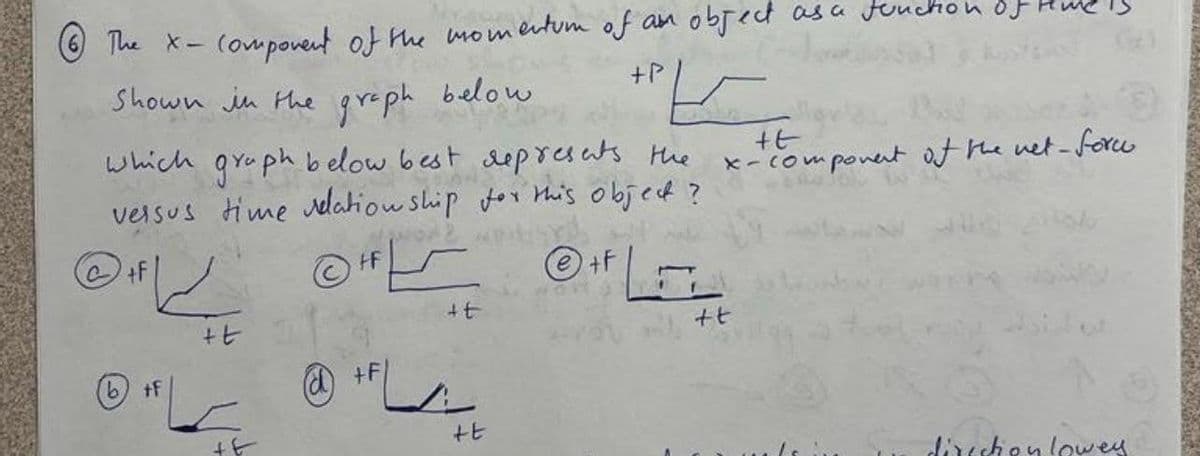 ⑥ The x- component of the momentum of an object as a function of time is
Shown in the graph below
+P
+t
which graph below best represents the x-component of the net-force
versus time relationship for this object ?
ⓐ +F
+t
ⓒ +F
+t
ⓔ +F
+t
ⓑ +F
+t
ⓓ +F
+t
direction lowey